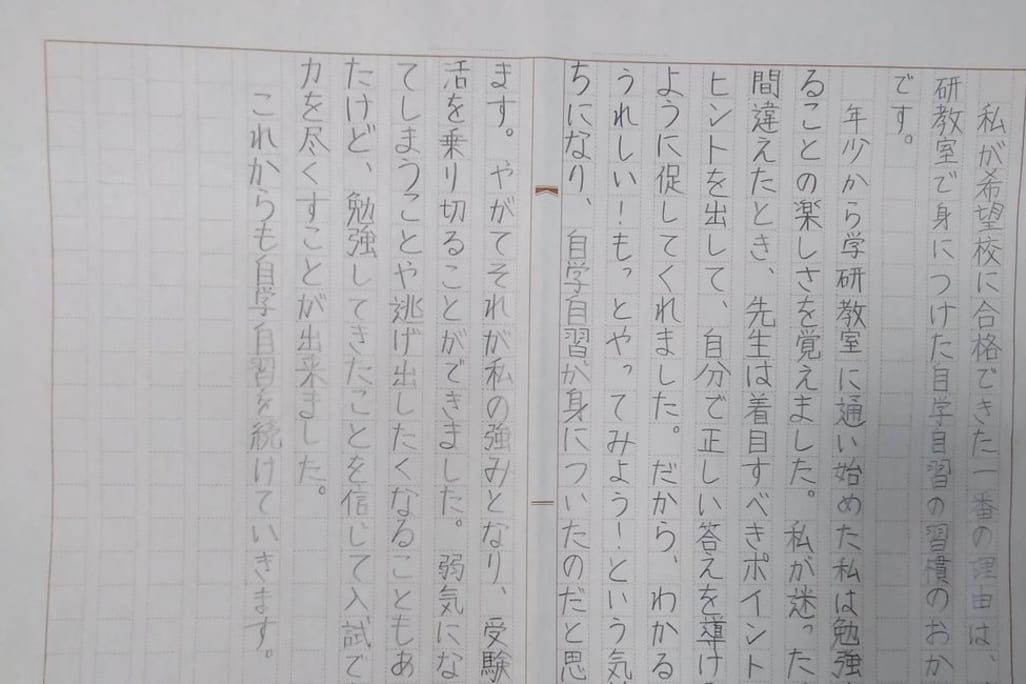 私が希望校に合格できた一番の理由は、
研教室で身につけた自学自習の習慣のおか
です。
年少から学研教室に通い始めた私は勉強
ることの楽しさを覚えました。私が迷った
間違えたとき、先生は着目すべきポイント
ヒントを出して、自分で正しい答えを導け
ように促してくれました。だから、わかる
うれしい！もっとやってみよう！という気
ちになり、自学自習が身についたのだと思
ます。やがてそれが私の強みとなり、受験
活を乗り切ることができました。弱気にな
てしまうことや逃げ出したくなることもあ
たけど、勉強してきたことを信じて入試で
力を尽くすことが出来ました。
これからも自学自習を続けていきます。